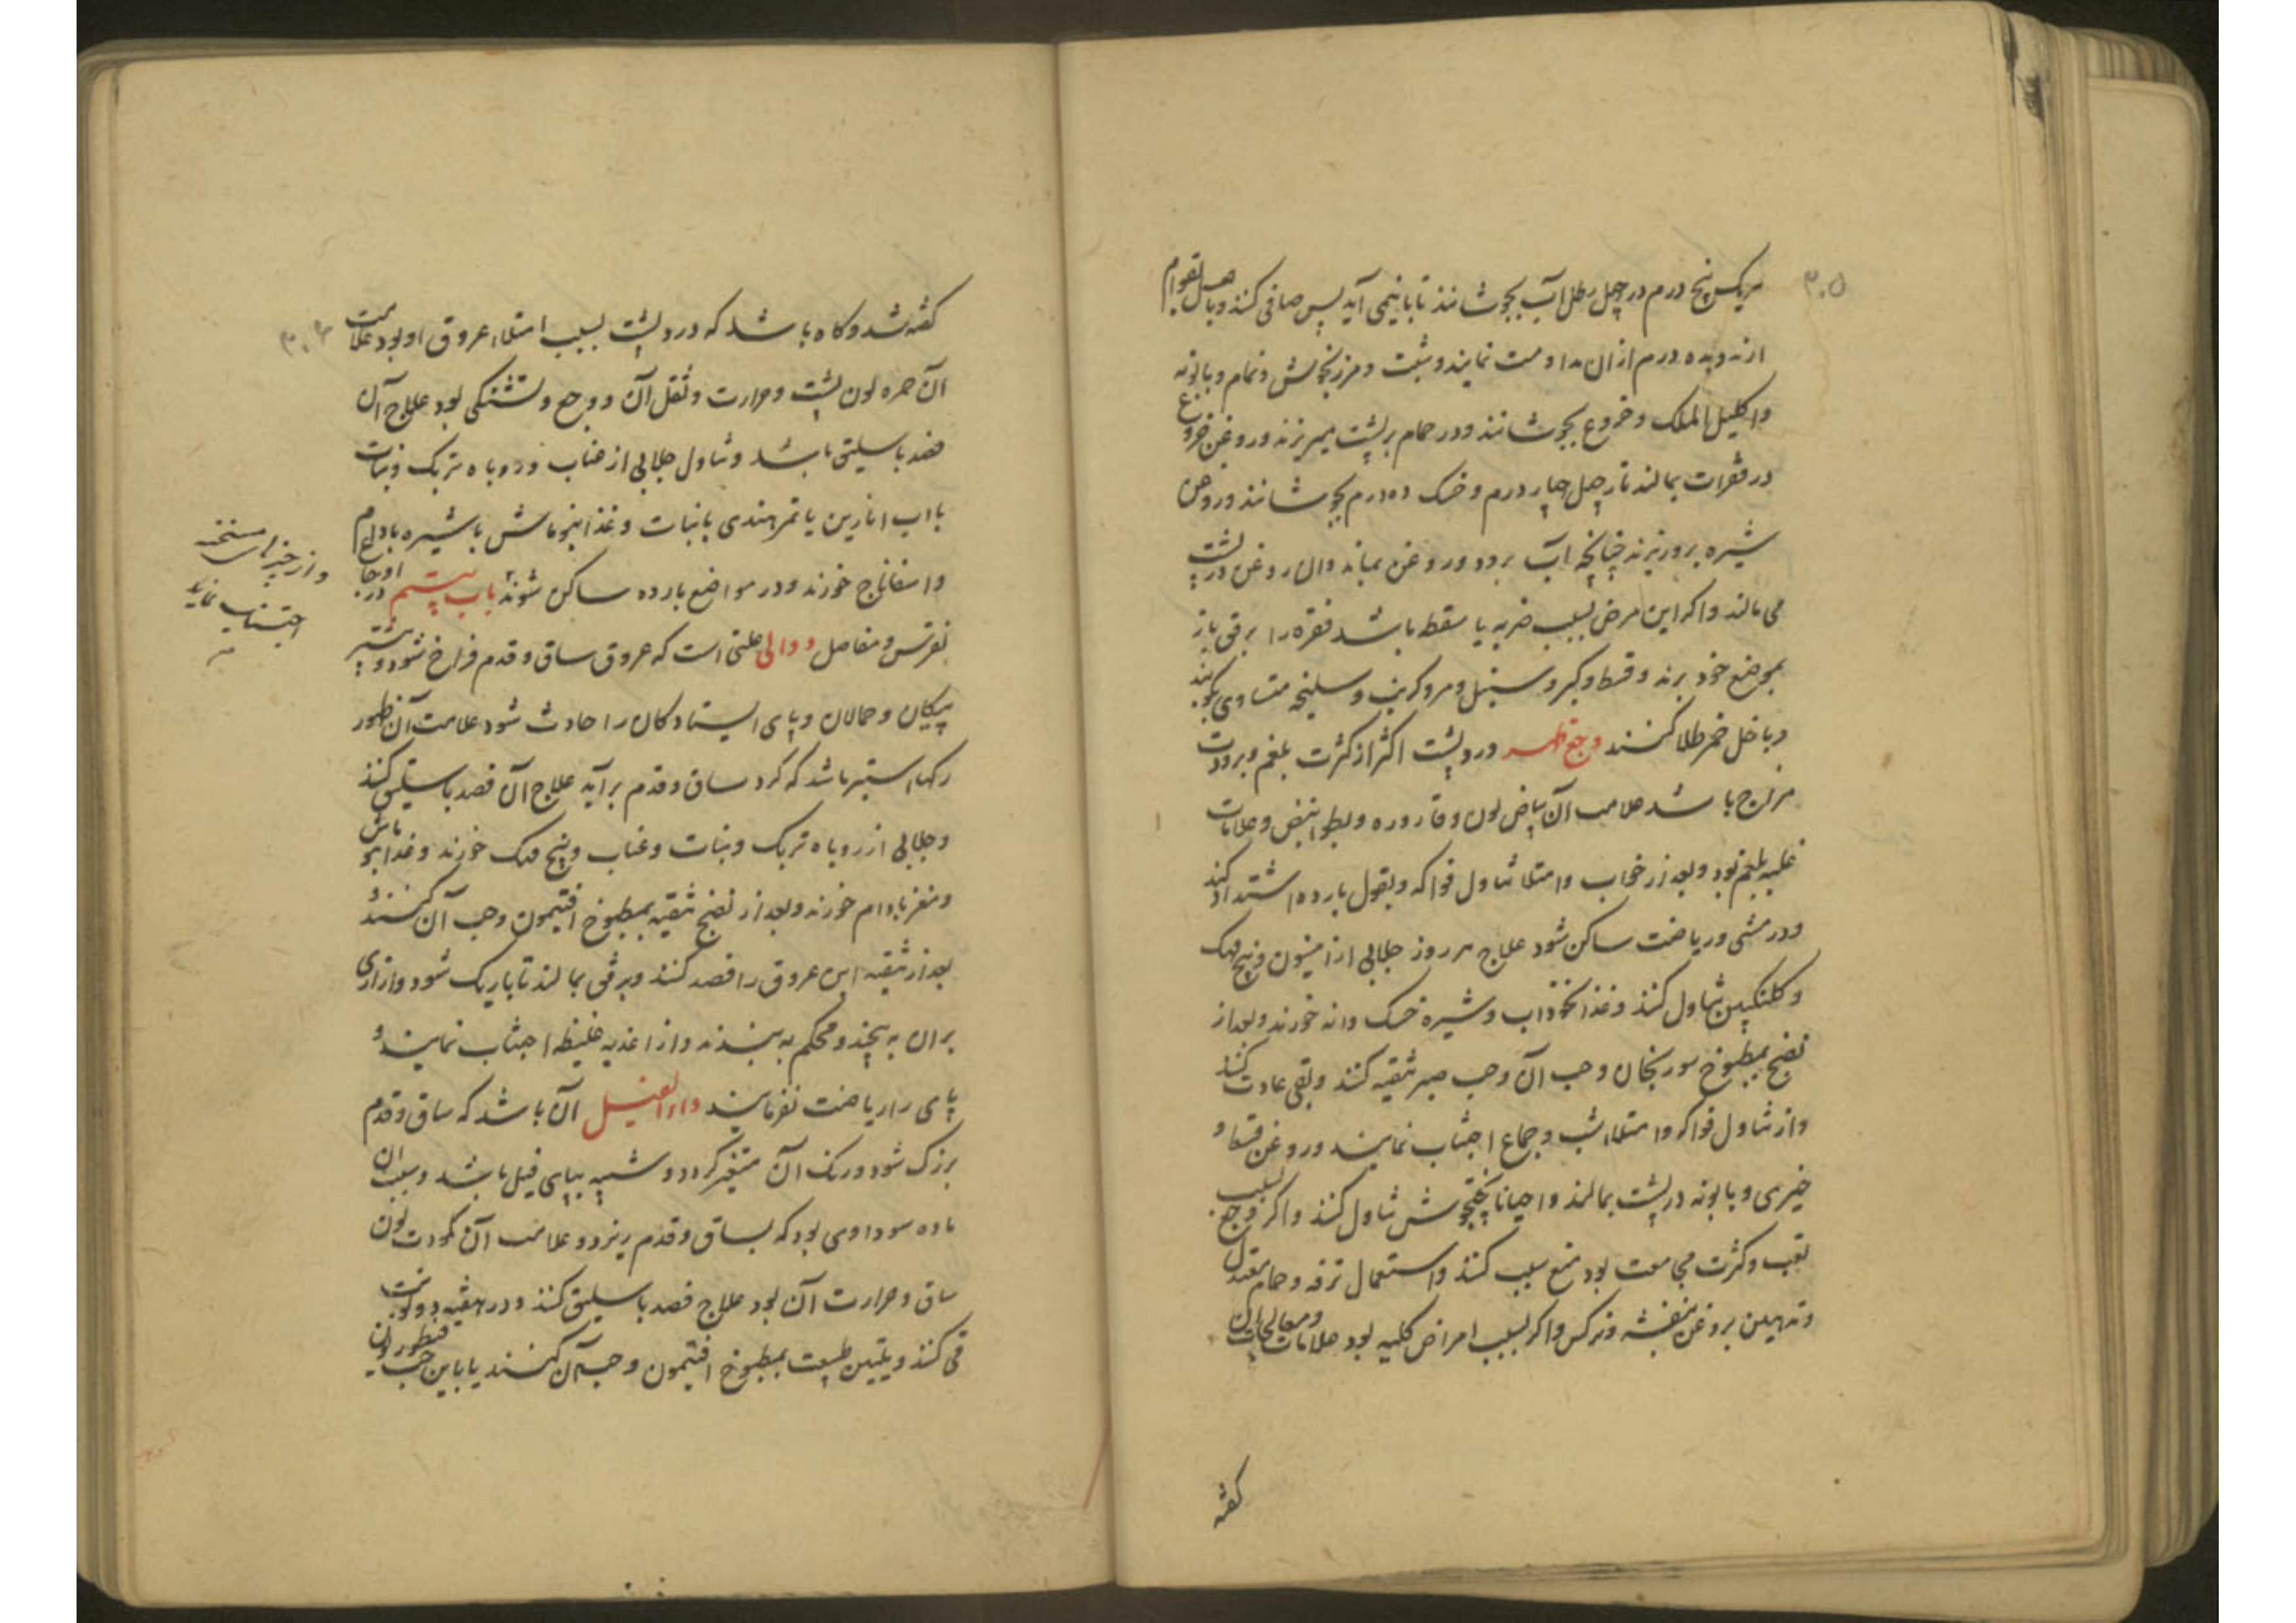 ۳۰۵
هریک پنج درم در چهل رطل آب بجوشانند تا با نیمی آید پس صافی کنند و با عسل بقوام
ارند و ده درم ازان مداومت نمایند و شبت و مرزنجوش و نمام و بابونه
و اکلیل الملک و خروع بجوشانند و در حمام بر پشت میریزند و روغن خروع
در فقرات بمالند نار چهل چهار درم و خسک ده درم بجوشانند و روغن
شیره برو ریزند چنانچه اب برود و روغن بماند و ان روغن در پشت
می مالند و اکر این مرض بسبب ضربه یا سقطه باشد فقره را برفق باز
بموضع خود برند و قسط و کبر و سنبل و مر و کرنب و سلیخه متساوی بکوبند
و با خل خمر طلا کنند وجع ظهر درد پشت اکثر از کثرت بلغم و برودت
مزاج باشد علامت آن بیاض لون و قاروره و بطو نبض و علامات
غلبه بلغم بود و بعد از خواب و امتلا تناول فواکه و بقول بارده اشتداد کند
و در مشی و ریاضت ساکن شود علاج هر روز جلابی از انیسون و بیخ مهک
و کلنکبین تناول کنند و غذا نخوداب و شیره خسک دانه خورند و بعد از
نضج بمطبوخ سورنجان و حب آن و حب صبر تنقیه کنند و بقی عادت کنند
و از تناول فواکه و امتلا شب و جماع اجتناب نمایند و روغن قسط و
خیری و بابونه در پشت بمالند و احیانا پختجوش تناول کنند و اکر وجع بسبب
تعب و کثرت مجامعت بود منع سبب کنند و استعمال ترفه و حمام معتدل
و تدهین بروغن بنفشه و نرکس و اکر بسبب امراض کلیه بود علامات و معالجات ان
کفته
۳۰۶
کفته شد و کاه باشد که درد پشت بسبب امتلاء عروق او بود علامت
آن حمره لون پشت و حرارت و ثقل آن و وجع و تشنکی بود علاج آن
فصد باسلیق باشد و تناول جلابی از عناب و روباه تربک و نبات
با اب انارین یا تمر هندی با نبات و غذا بنو ماش با شیره بادام
و اسفاناج خورند و در مواضع بارده ساکن شوند باب بیستم در اوجاع
نقرس و مفاصل دوالی علتی است که عروق ساق و قدم فراخ شود و بیشتر
پیکان و حمالان و بپای ایستادکان را حادث شود علامت آن ظهور
رکها استبر باشد که کرد ساق و قدم برآید علاج آن فصد باسلیق کنند
و جلابی از روباه تربک و نبات و عناب و بیخ مهک خورند و غذا بنو ماش
و مغز بادام خورند و بعد از نضج تنقیه بمطبوخ افتیمون و حب آن کنند و
بعد از تنقیه این عروق را فصد کنند و برفق بمالند تا باریک شود و ازاری
بران به پیچند و محکم به بندند و از اغذیه غلیظه اجتناب نمایند و
پای را ریاضت نفرمایند داء الفیل آن باشد که ساق و قدم
بزرک شود و رنک آن متغیر کردد و شبیه بپای فیل باشد و سبب ان
ماده سوداوی بود که بساق و قدم ریزد و علامت آن کمودت لون
ساق و حرارت آن بود علاج فصد باسلیق کنند و در هفته دو نوبت
قی کنند و تلیین طبیعت بمطبوخ افتیمون و حب آن کنند یا باین حب
و از چیزهای مسخنه
اجتناب نماید